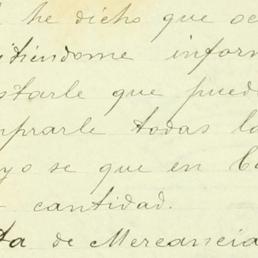 he dicho que oc
itiéndome inform
starle que puede
mprarle todas la
yo se que en Ca
cantidad.
ta de Mercancia